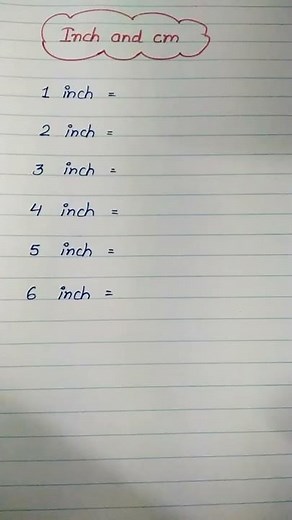 Inch and cm
1 inch =
2 inch =
3 inch =
4 inch =
5 inch =
6 inch =